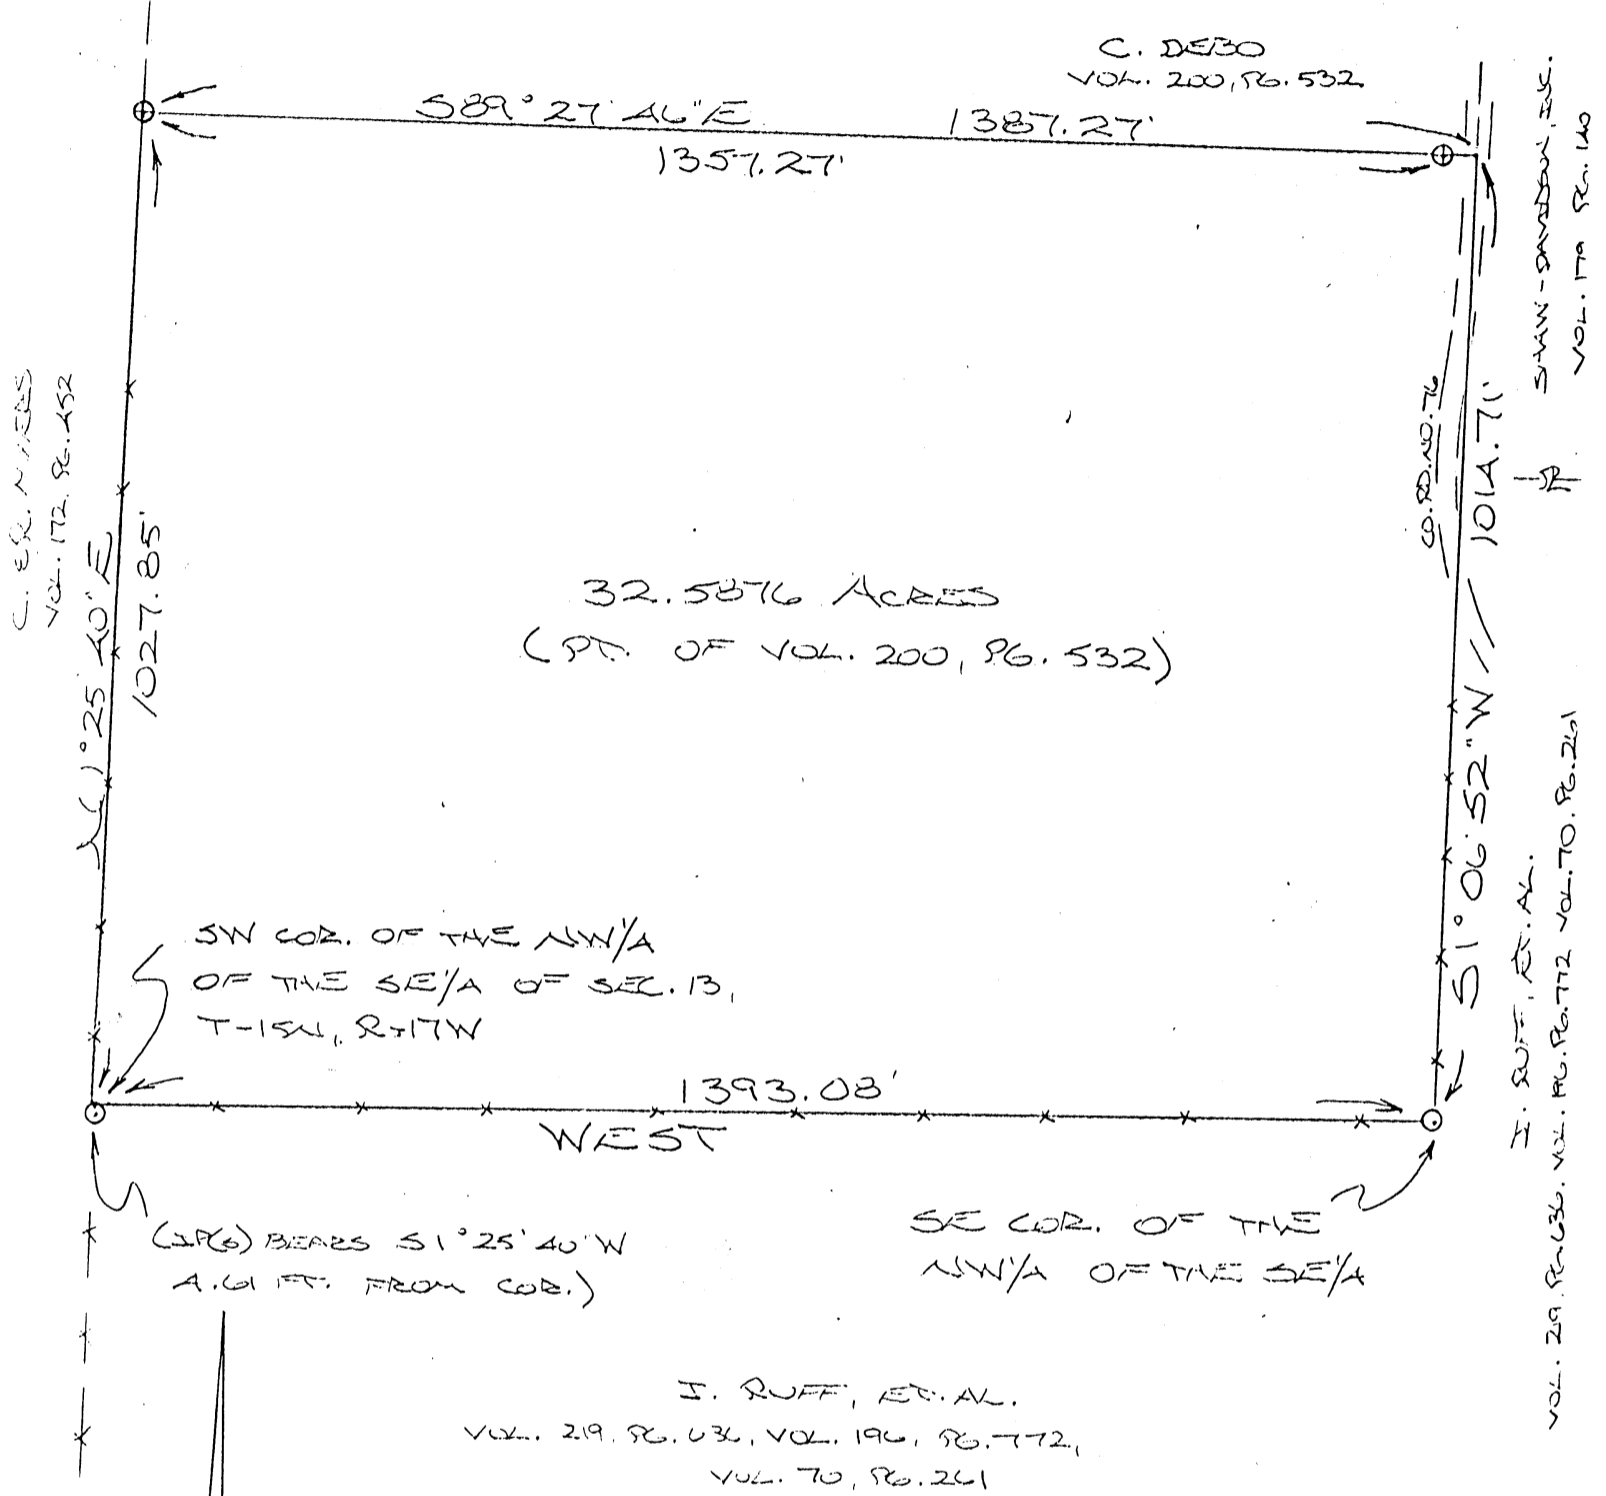 C. DEBO
VOL. 200, PG. 532
S89° 27' 46" E
1387.27'
1357.27'
SHAW-DAVIDSON, INC.
VOL. 179 PG. 140
C. & R. MYERS
VOL. 172. PG. 452
N 1° 25' 40" E
1027.85'
CO. RD. NO. 76
1014.71'
S1° 06' 52" W
32.5876 ACRES
(PT. OF VOL. 200, PG. 532)
SW COR. OF THE NW1/4
OF THE SE1/4 OF SEC. 13,
T-15N, R-17W
1393.08'
WEST
(IP(S) BEARS S1° 25' 40" W
4.61 FT. FROM COR.)
SE COR. OF THE
NW1/4 OF THE SE1/4
I. RUFF, ET. AL.
VOL. 219. PG. 636. VOL. 196. PG. 772 VOL. 70. PG. 261
I. RUFF, ET. AL.
VOL. 219. PG. 636, VOL. 196, PG. 772,
VOL. 70, PG. 261